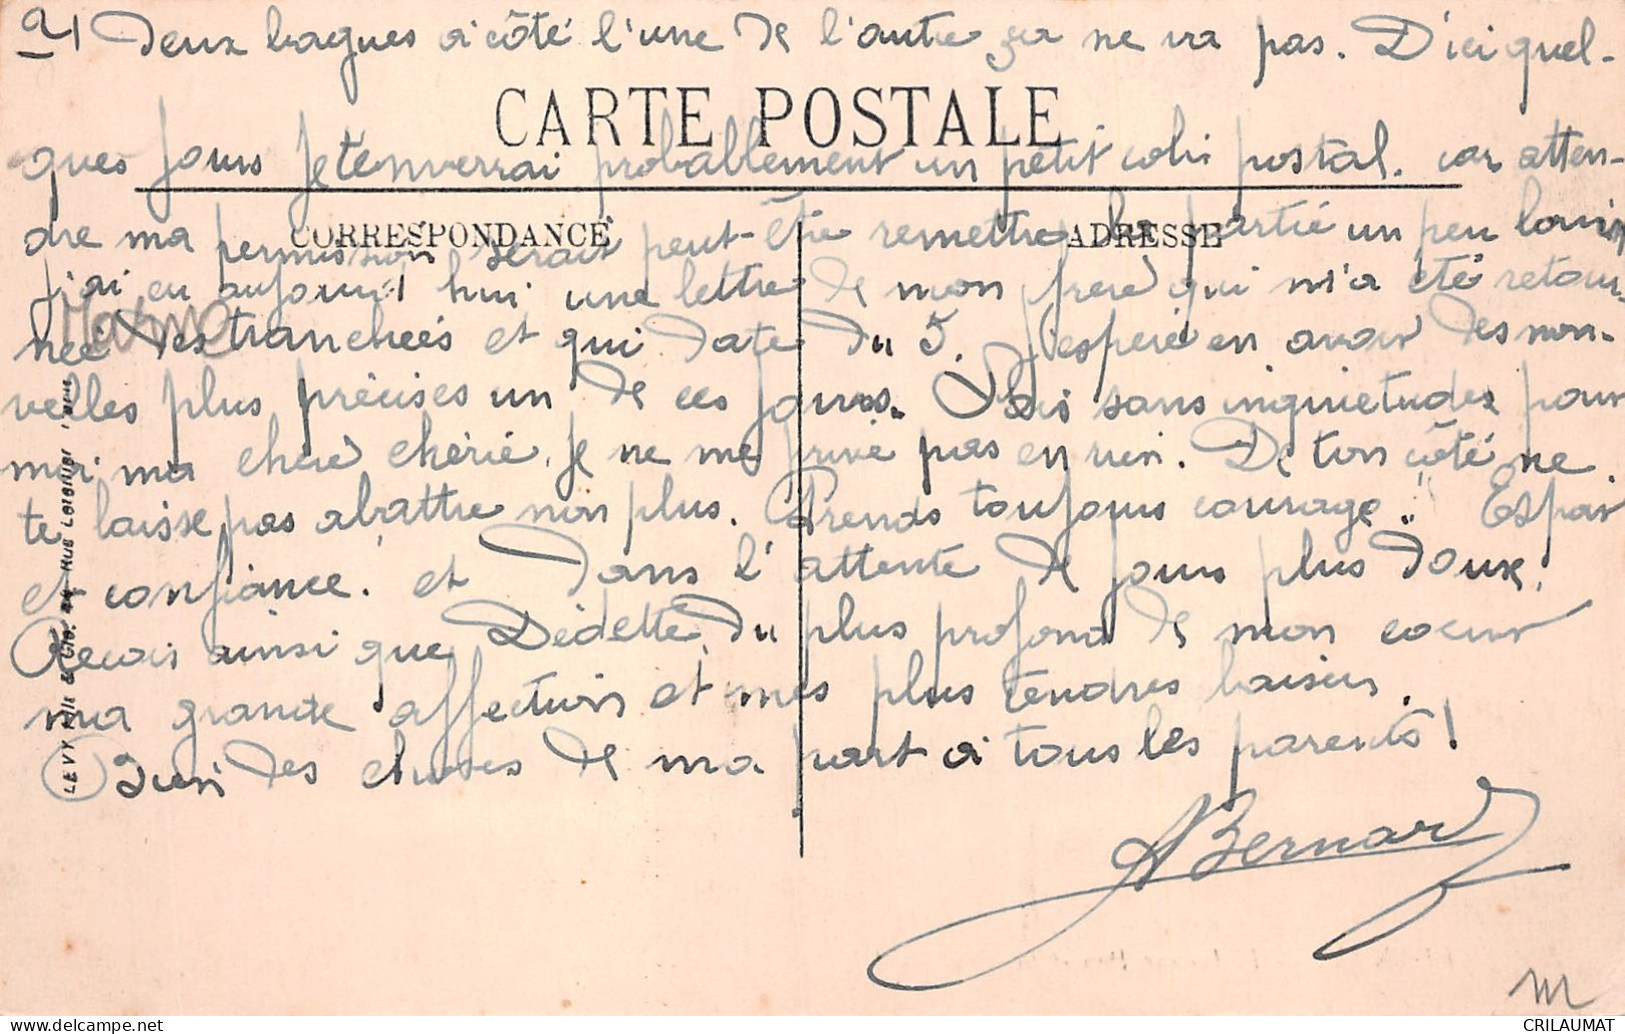 2) Deux bagues à côté l'une de l'autre ça ne va pas. D'ici quel-
CARTE POSTALE
ques jours je t'enverrai probablement un petit colis postal. car atten-
dre ma permission serait peut-être remettre la partie un peu loin
CORRESPONDANCE
ADRESSE
j'ai eu aujourd'hui une lettre de mon frère qui m'a été retour-
née des tranchées et qui date du 5. J'espère en avoir des nou-
velles plus précises un de ces jours. Sois sans inquiétudes pour
moi ma chère chérie, je ne me prive pas en rien. De ton côté ne
te laisse pas abattre non plus. Prends toujours courage.. Espoir
et confiance. et dans l'attente de jours plus doux.
Reçois ainsi que Dédette du plus profond de mon coeur
ma grande affection et mes plus tendres baisers.
des choses de ma part à tous les parents!
ABernard
Marne
LEVY Fils & Cie. 44, Rue Letellier
M
CRILAUMAT